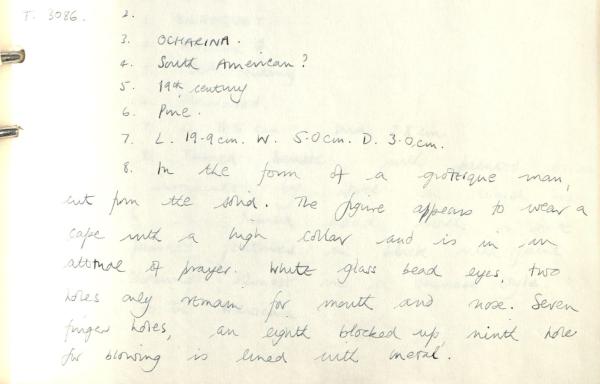 T. 3086.
2.
3. OCHARINA.
4. South American?
5. 19th century
6. Pine.
7. L. 19.9cm. W. 5.0cm. D. 3.0cm.
8. In the form of a grotesque man,
cut from the solid. The figure appears to wear a
cape with a high collar and is in an
attitude of prayer. White glass bead eyes, two
holes only remain for mouth and nose. Seven
finger holes, an eighth blocked up, ninth hole
for blowing is lined with metal.